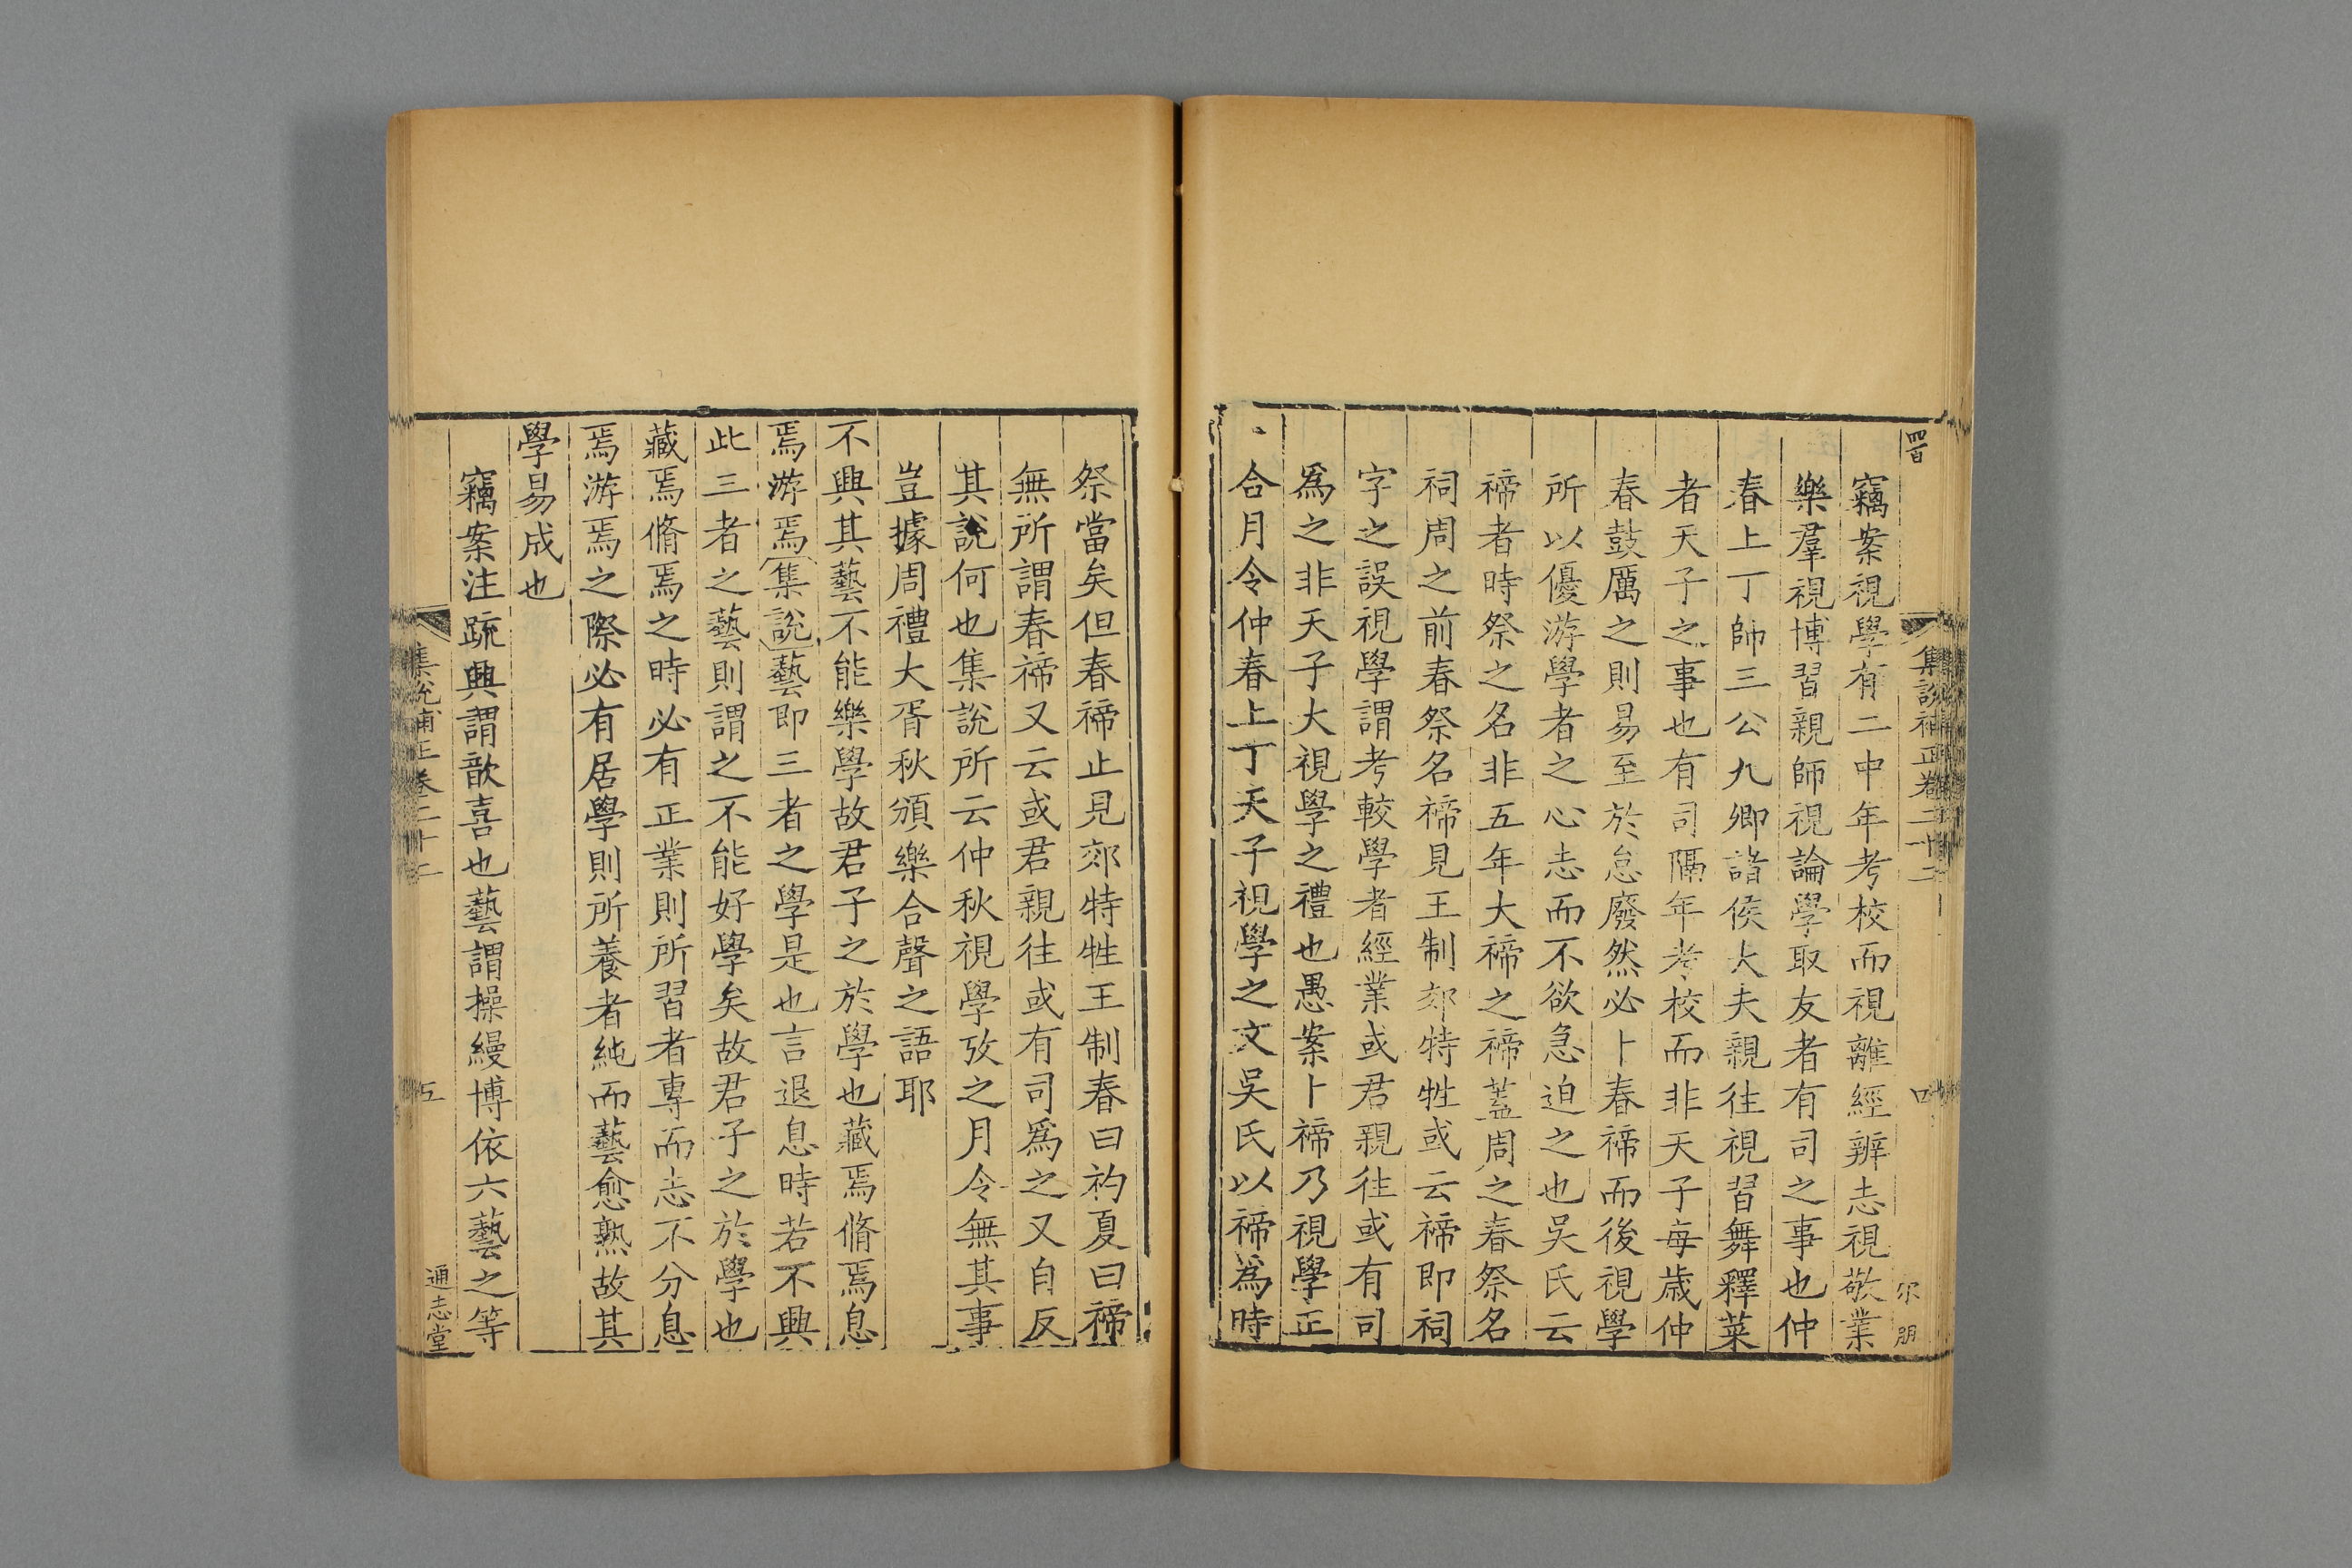 集說補正卷二十二
四
竊案視學有二中年考校而視離經辨志視敬業
樂羣視博習親師視論學取友者有司之事也仲
春上丁帥三公九卿諸侯大夫親往視習舞釋菜
者天子之事也有司隔年考校而非天子每歲仲
春鼓厲之則易至於怠廢然必卜春禘而後視學
所以優游學者之心志而不欲急迫之也吳氏云
禘者時祭之名非五年大禘之禘蓋周之春祭名
祠周之前春祭名禘見王制郊特牲或云禘即祠
字之誤視學謂考較學者經業或君親往或有司
爲之非天子大視學之禮也愚案卜禘乃視學正
合月令仲春上丁天子視學之文吳氏以禘為時
祭當矣但春禘止見郊特牲王制春曰礿夏曰禘
無所謂春禘又云或君親往或有司爲之又自反
其說何也集說所云仲秋視學攷之月令無其事
豈據周禮大胥秋頒樂合聲之語耶
不興其藝不能樂學故君子之於學也藏焉脩焉息
焉游焉集說藝即三者之學是也言退息時若不興
此三者之藝則謂之不能好學矣故君子之於學也
藏焉脩焉之時必有正業則所習者專而志不分息
焉游焉之際必有居學則所養者純而藝愈熟故其
學易成也
竊案注疏興謂歆喜也藝謂操縵博依六藝之等
集說補正卷二十二
五
通志堂